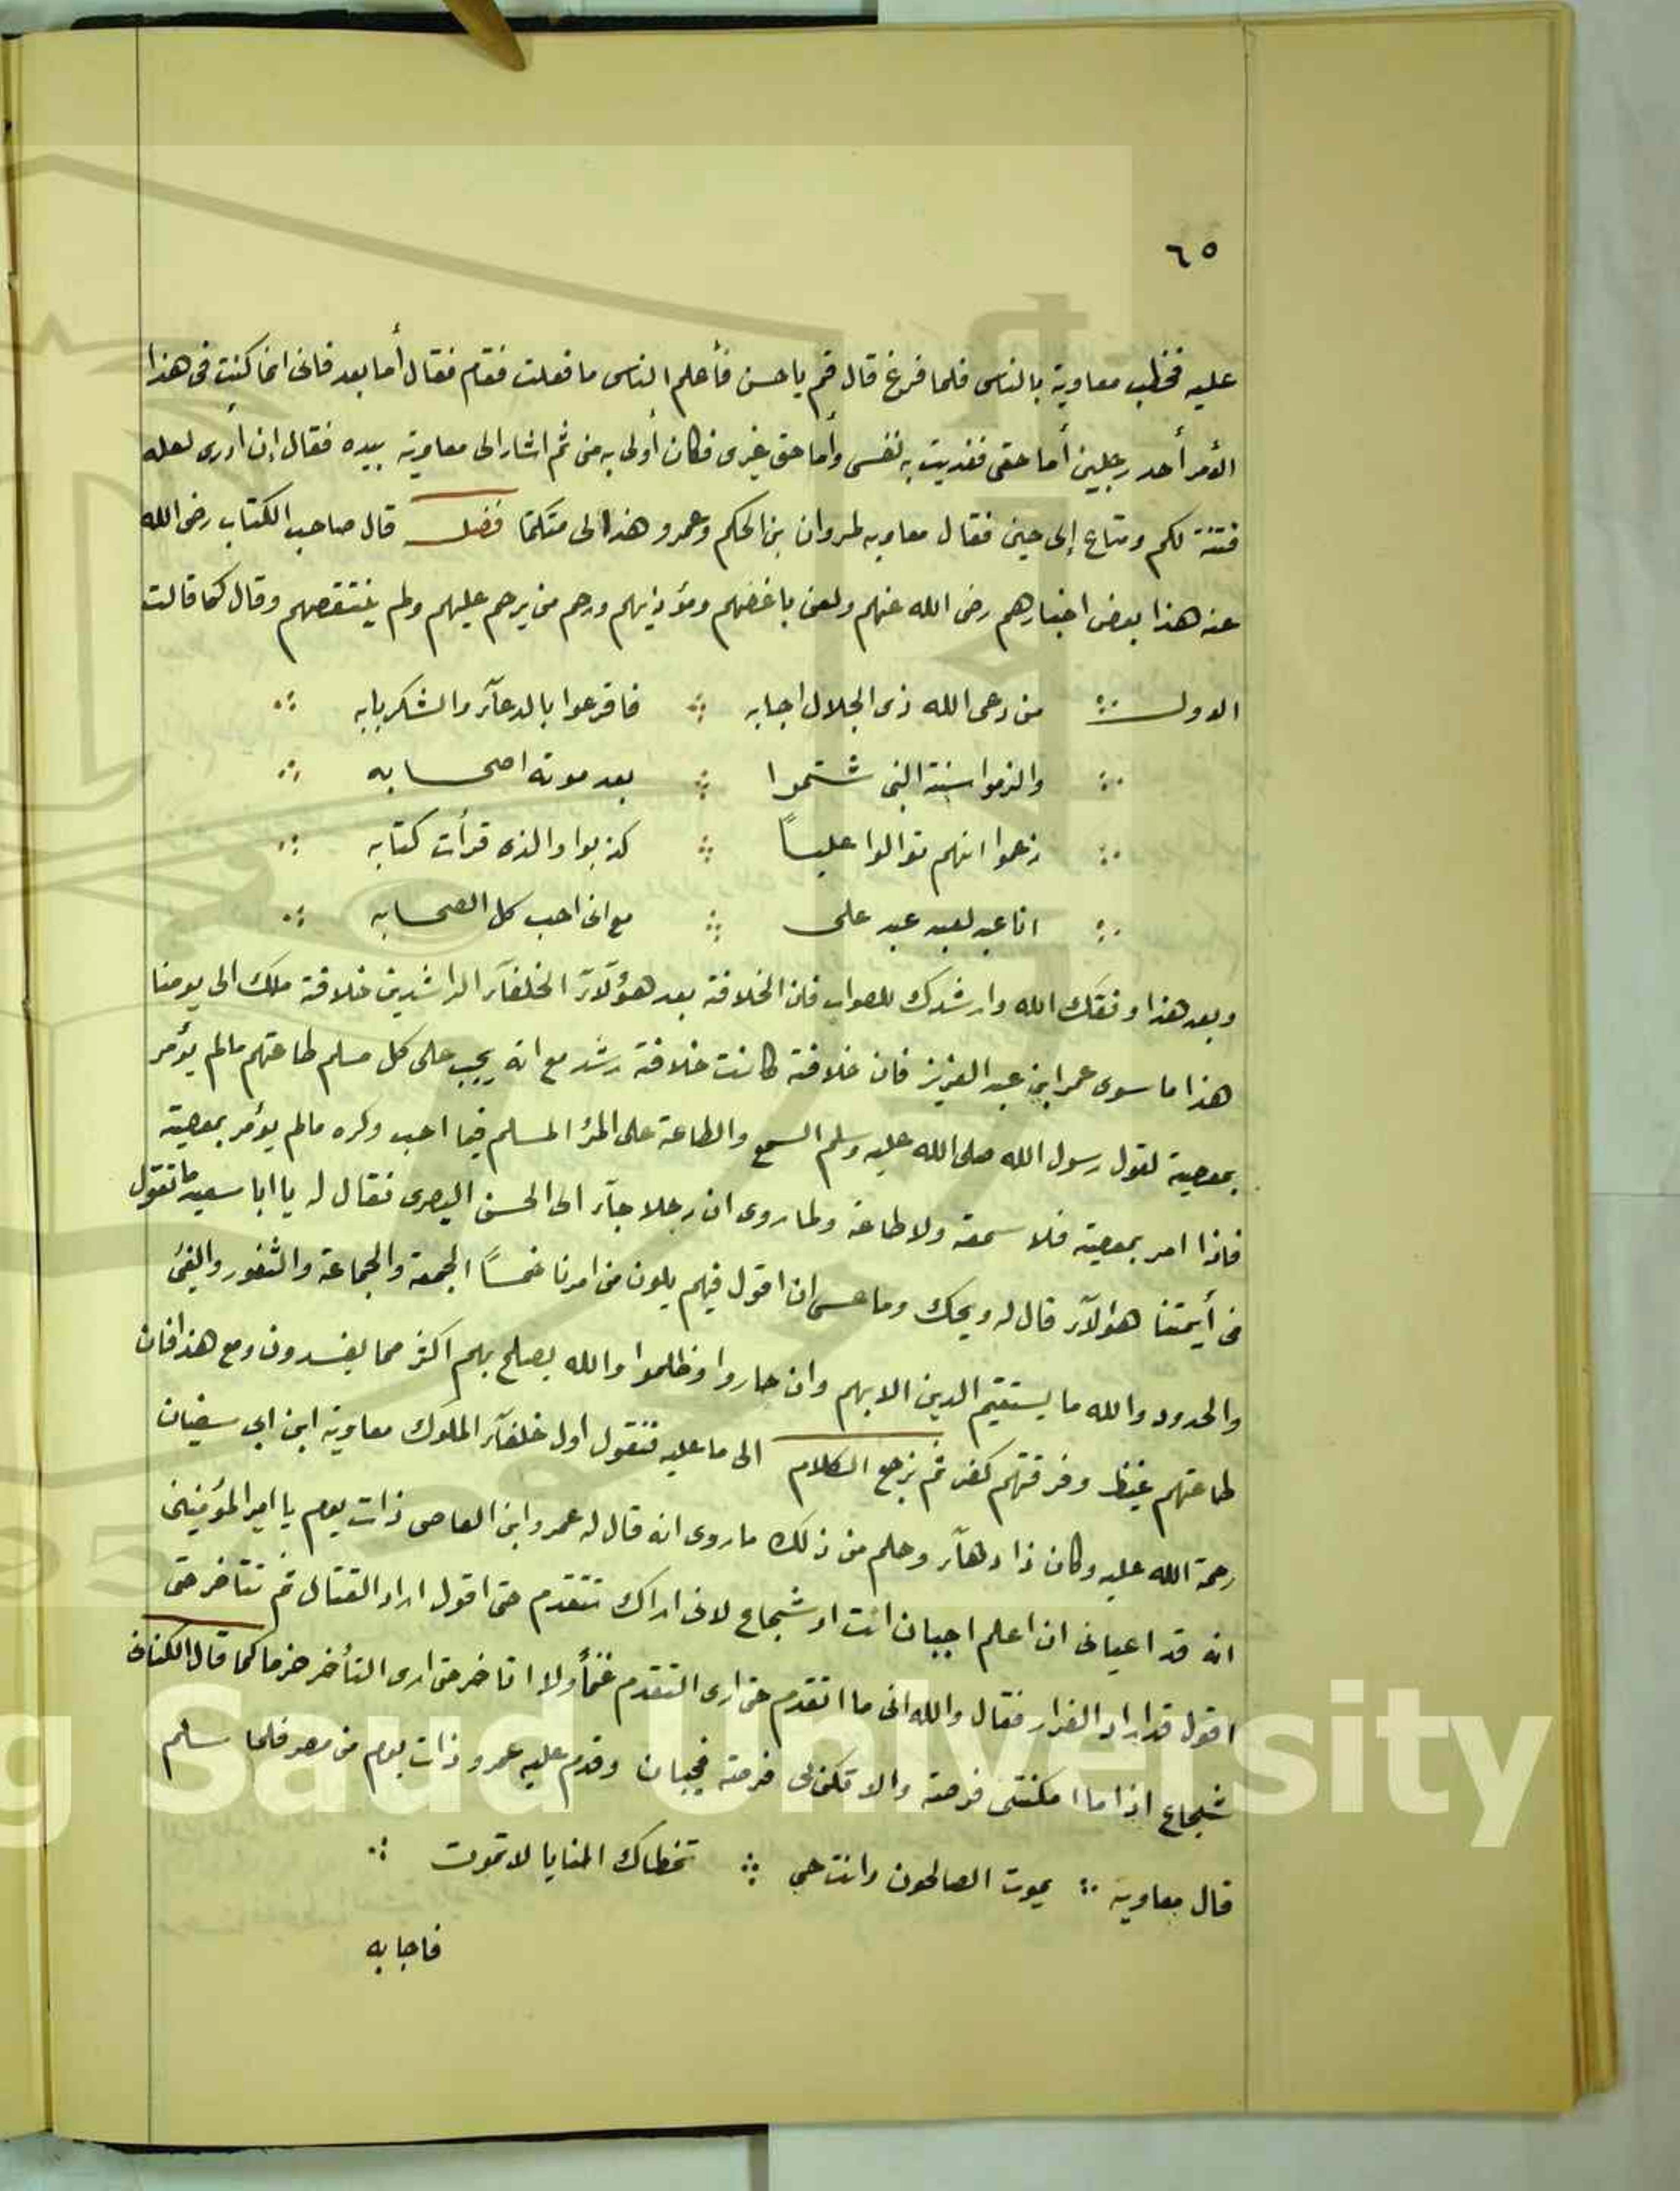 ٦٥
عليه فخطب معاوية بالناس فلما فرغ قال قم يا حسن فأعلم الناس ما فعلت فقام فقال أما بعد فانى انما كنت فى هذا
الأمر أحد رجلين أما حقى ففديت به نفسى وأما حق غيرى فكان أولى به منى ثم اشار الى معاوية بيده فقال إن أدرى لعله
فتنة لكم ومتاع إلى حين فقال معاويه لمروان بن الحكم وعمرو هذا الى متكلما فصل قال صاحب الكتاب رضى الله
عنه هذا بعض اخبارهم رضى الله عنهم ولعن باغضهم ومؤذيهم ورحم من يرحم عليهم ولم ينتقصهم وقال كما قالت
الدول من دعى الله ذى الجلال اجابه فاقرعوا بالدعآء والشكر بابه
والزموا سنة النبى شتموا بعد موته اصحابه
زعموا انهم توالوا علياً كذبوا والذى قرأت كتابه
انا عبد لعبد عبد على مع انى احب كل الصحابه
وبعد هذا وفقك الله وارشدك للصواب فان الخلافة بعد هؤلآء الخلفآء الراشدين خلافة ملك الى يومنا
هذا ما سوى عمر ابن عبد العزيز فان خلافة كانت خلافة رشد مع انه يجب على كل مسلم طاعتهم مالم يؤمر
بمعصية لقول رسول الله صلى الله عليه وسلم السمع والطاعة على المرء المسلم فيما احب وكره مالم يؤمر بمعصية
فاذا امر بمعصية فلا سمعة ولا طاعة ولما روى ان رجلا جآء الى الحسن البصرى فقال له يا ابا سعيد ما تقول
فى أيمتنا هؤلآء قال له ويحك وما عسى ان اقول فيهم يلون من امرنا خمساً الجمعة والجماعة والثغور والفئ
والحدود والله ما يستقيم الدين الا بهم وان جاروا وظلموا والله يصلح بهم اكثر مما يفسدون ومع هذا فان
طاعتهم غيظ وفرقتهم كفر ثم نرجع الكلام الى ما عليه فنقول اول خلفآء الملوك معاوية ابن ابي سفيان
رحمة الله عليه وكان ذا دهآء وحلم من ذلك ما روى انه قال له عمرو ابن العاصى ذات يوم يا امير المؤمنين
انه قد اعيانى ان اعلم اجبان انت ام شجاع لانى اراك تتقدم حتى اقول اراد القتال ثم تتأخر حتى
اقول قد اراد الفرار فقال والله انى ما اتقدم حتى ارى التقدم غنماً ولا اتاخر حتى ارى التأخر حزما كما قال الكنانى
شجاع اذا ما امكنتنى فرصة والا تكن لى فرصة فجبان وقدم عليه عمرو ذات يوم من مصر فلما سلم
قال معاوية يموت الصالحون وانت حي تخطاك المنايا لا تموت
فاجابه
g Saud University